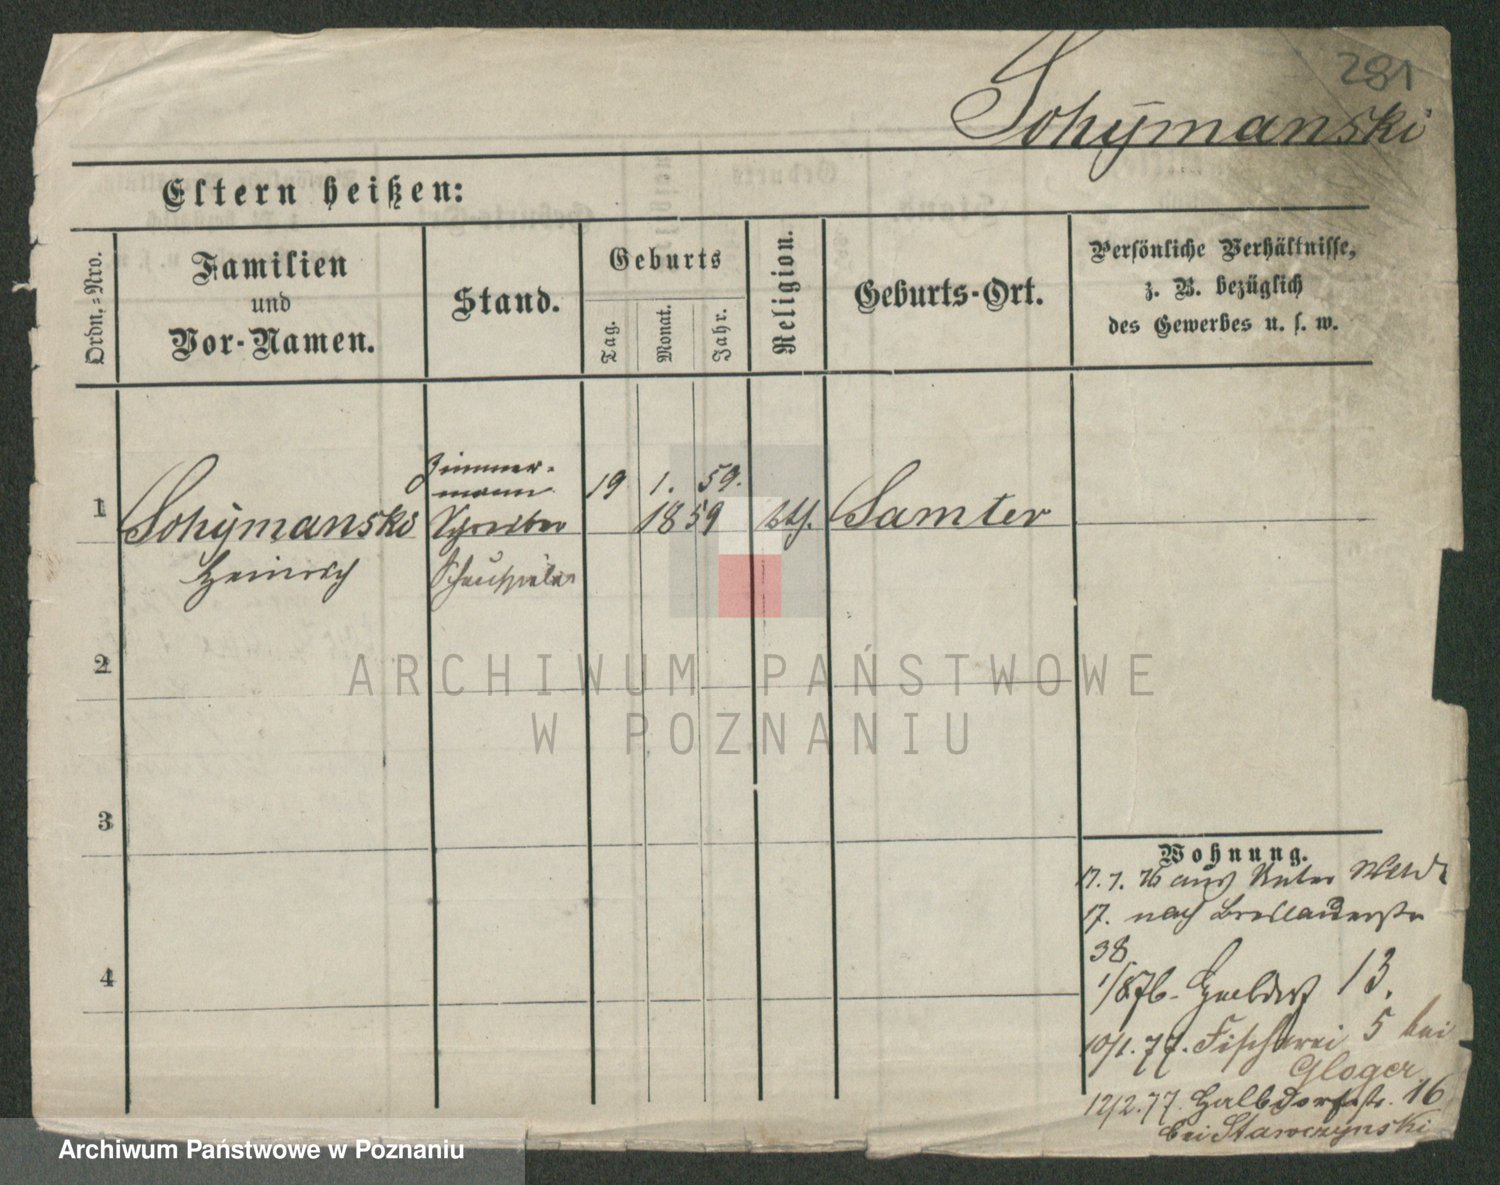 281
Sohÿmanski
Eltern heißen:
Ordn.-Nro.
Familien
und
Vor-Namen.
Stand.
Geburts
Tag.
Monat.
Jahr.
Religion.
Geburts-Ort.
Persönliche Verhältnisse,
z. B. bezüglich
des Gewerbes u. s. w.
1
Sohÿmanski
Heinrich
Zimmer-
mann
Schreiber
Schauspieler
19 1. 59.
1859
kth.
Samter
2
3
4
Wohnung.
17.7. 76 aus Unter
17. nach Breslauerstr
38
1/8.76. Halbdrf 13.
10/1.77. Fischerei 5 bei
Gloger
12/2.77. Halbdorfstr. 16
bei Stawczynski
ARCHIWUM PAŃSTWOWE
W POZNANIU
Archiwum Państwowe w Poznaniu